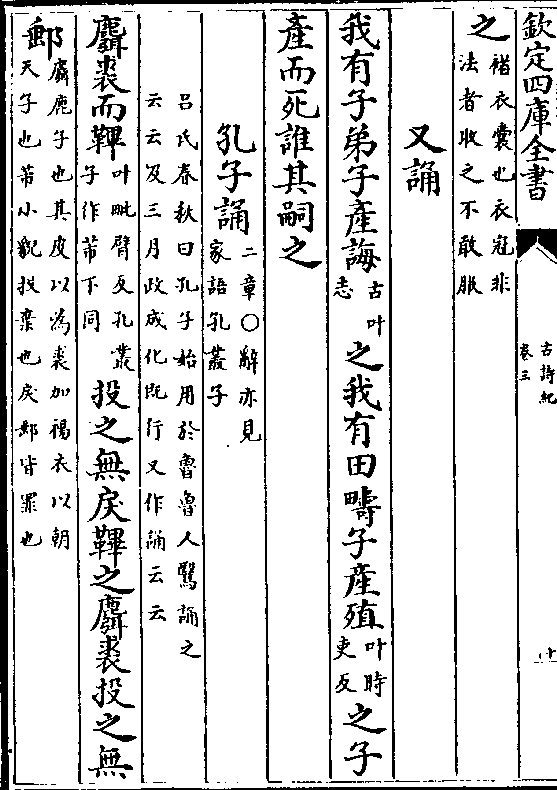 欽定四庫全書
古詩紀
卷三
十
之褚衣囊也衣冠非
法者收之不敢服
又誦
我有子弟子產誨古叶
志之我有田疇子產殖叶時
吏反之子
產而死誰其嗣之
孔子誦二章○辭亦見
家語孔叢子
呂氏春秋曰孔子始用於魯魯人鷖誦之
云云及三月政成化既行又作誦云云
麛裘而鞞叶毗臂反孔叢
子作芾下同投之無戾鞞之麛裘投之無
郵麛鹿子也其皮以為裘加裼衣以朝
天子也芾小貌投棄也戾郵皆罪也